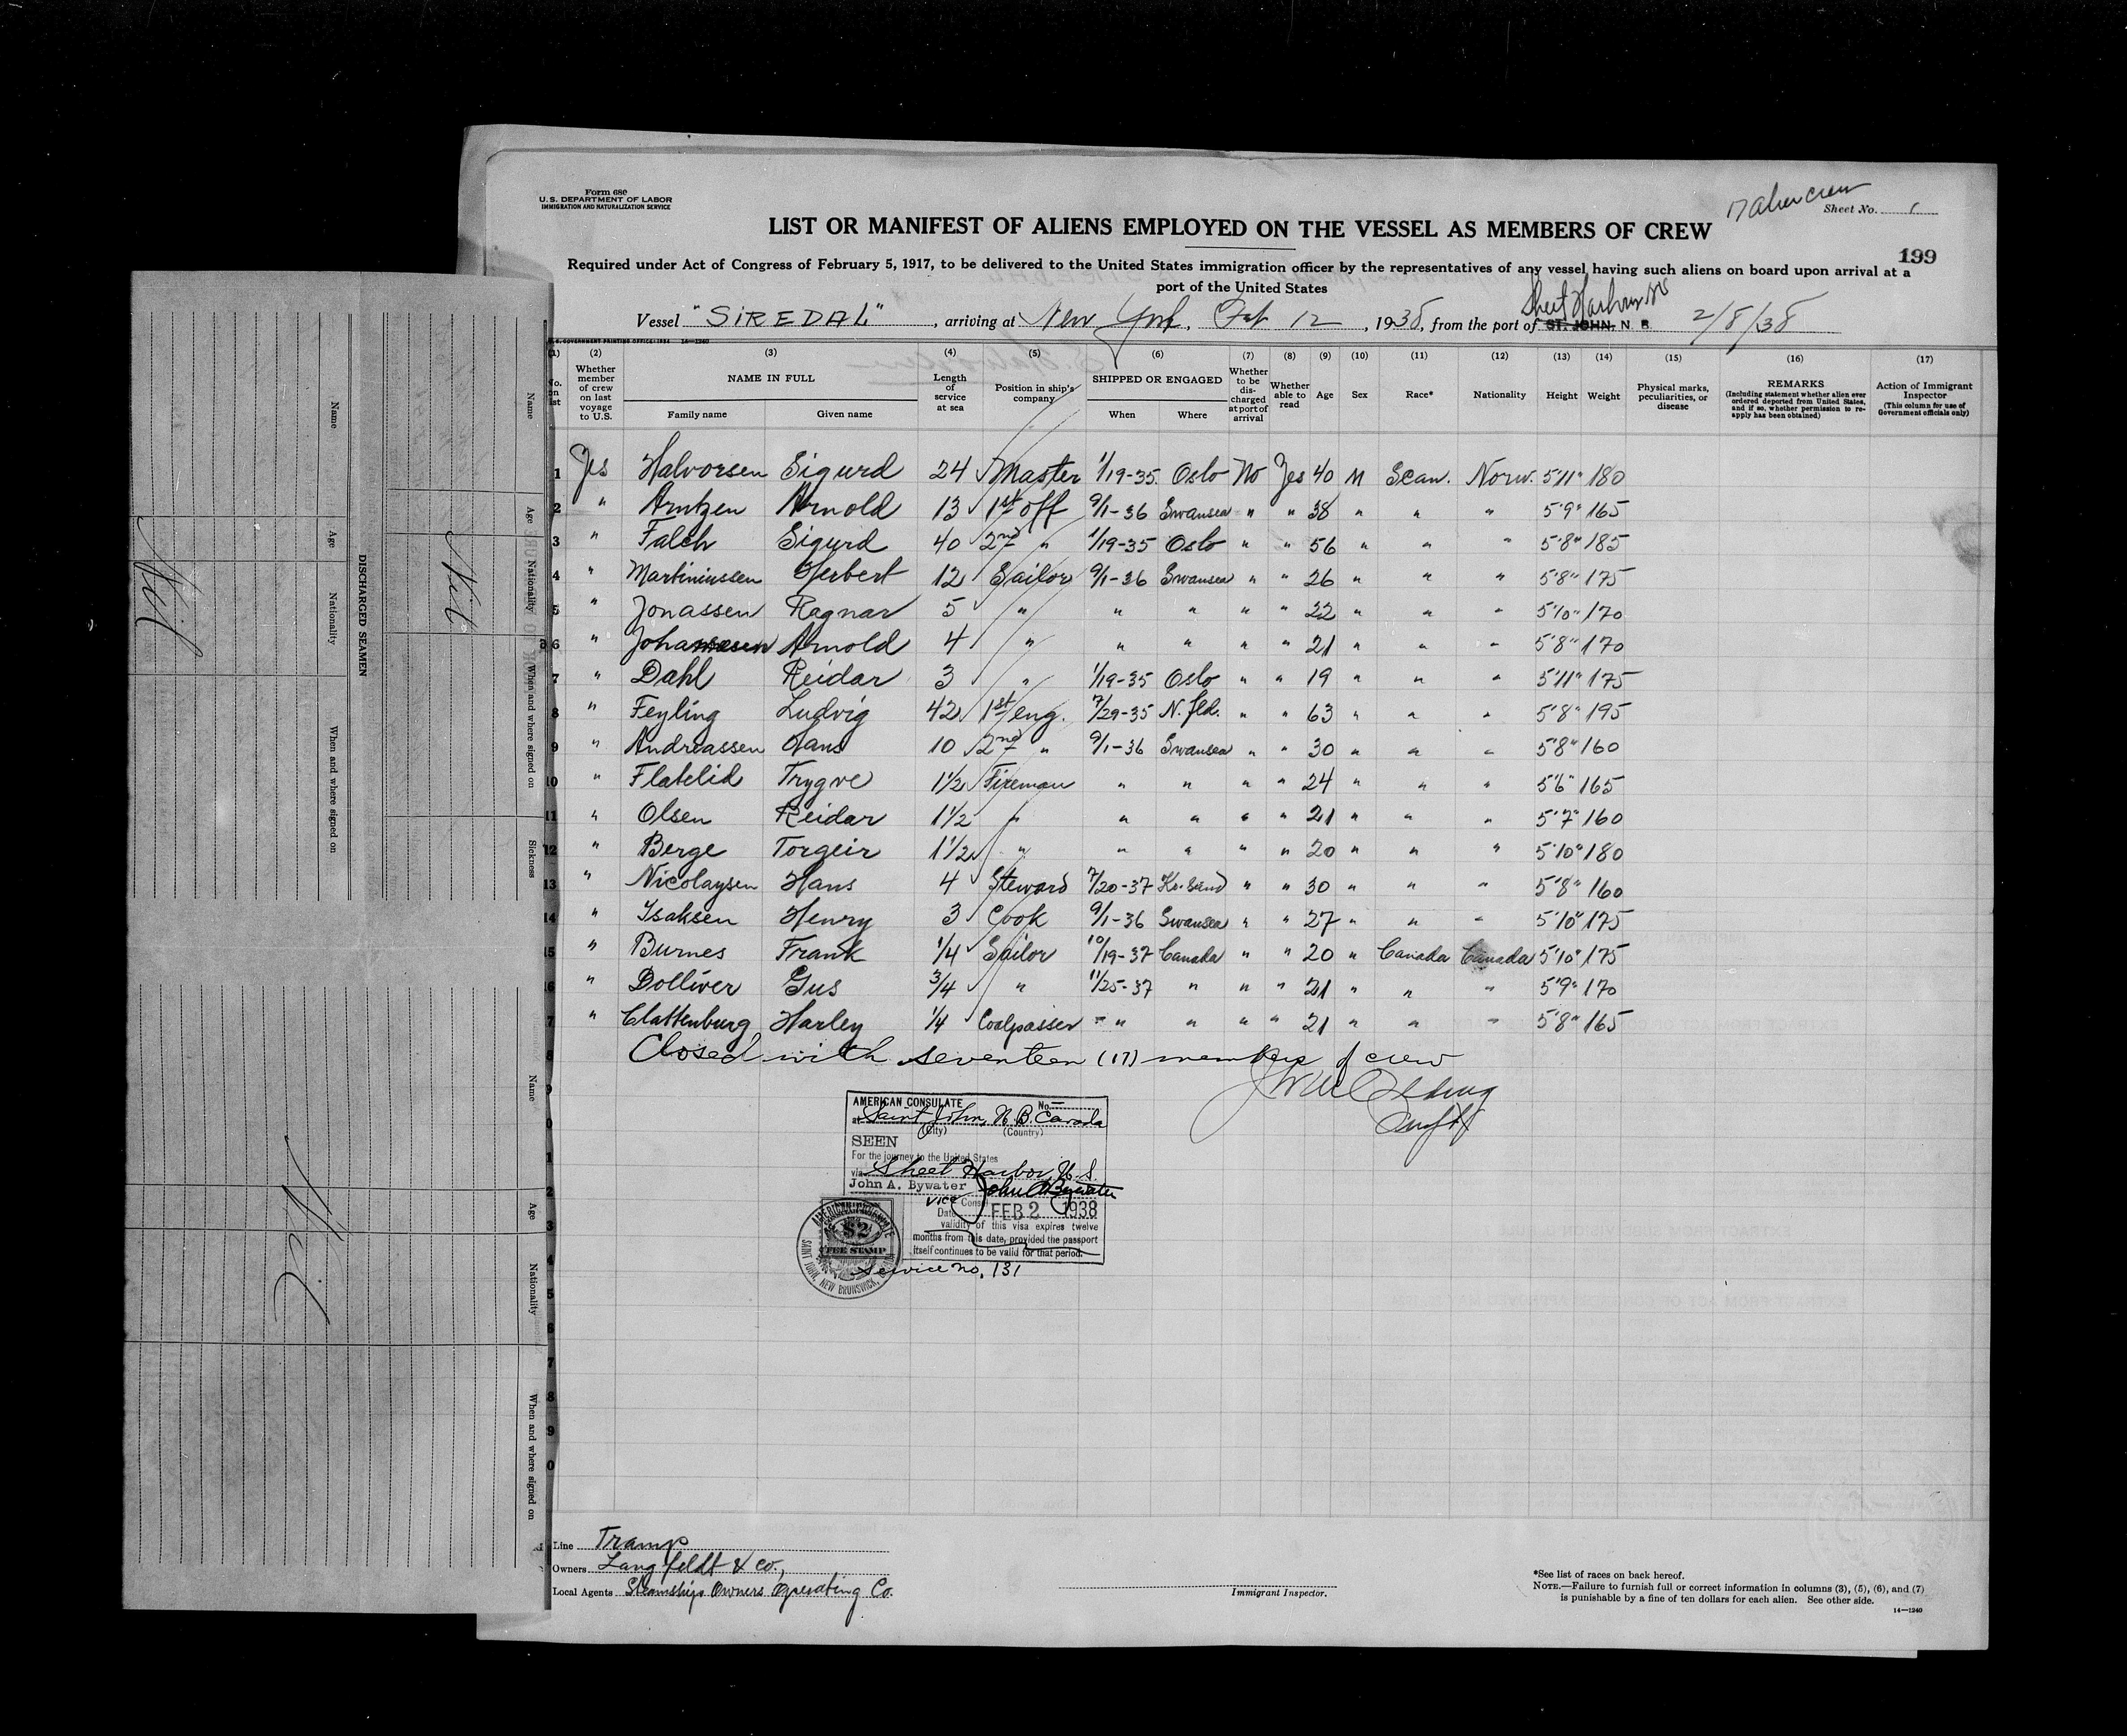 Form 680
U.S. DEPARTMENT OF LABOR
IMMIGRATION AND NATURALIZATION SERVICE
17 alien crew
Sheet No. 1
LIST OR MANIFEST OF ALIENS EMPLOYED ON THE VESSEL AS MEMBERS OF CREW
199
Required under Act of Congress of February 5, 1917, to be delivered to the United States immigration officer by the representatives of any vessel having such aliens on board upon arrival at a
port of the United States
Sheet Harbour NS
Vessel "SIREDAL", arriving at New York, Feb 12, 1938, from the port of ST. JOHN, N. B. 2/8/38
U.S. GOVERNMENT PRINTING OFFICE: 1934 14—1240
(1) (2) (3) (4) (5) (6) (7) (8) (9) (10) (11) (12) (13) (14) (15) (16) (17)
No. on list
Whether member of crew on last voyage to U.S.
NAME IN FULL
Family name Given name
Length of service at sea
Position in ship's company
SHIPPED OR ENGAGED
When Where
Whether to be discharged at port of arrival
Whether able to read
Age
Sex
Race*
Nationality
Height
Weight
Physical marks, peculiarities, or disease
REMARKS
(Including statement whether alien ever ordered deported from United States, and if so, whether permission to reapply has been obtained)
Action of Immigrant Inspector
(This column for use of Government officials only)
1 Yes Halvorsen Sigurd 24 Master 1/19-35 Oslo No Yes 40 M Scan. Norw. 5'11" 180
2 " Arntzen Arnold 13 1st off 9/1-36 Swansea " " 38 " " " 5'9" 165
3 " Falch Sigurd 40 2nd " 1/19-35 Oslo " " 56 " " " 5'8" 185
4 " Martiniussen Herbert 12 Sailor 9/1-36 Swansea " " 26 " " " 5'8" 175
5 " Jonassen Ragnar 5 " " " " " 22 " " " 5'10" 170
6 " Johannesen Arnold 4 " " " " " 21 " " " 5'8" 170
7 " Dahl Reidar 3 " 1/19-35 Oslo " " 19 " " " 5'11" 175
8 " Feyling Ludvig 42 1st eng. 7/29-35 N. fld. " " 63 " " " 5'8" 195
9 " Andreassen Hans 10 2nd " 9/1-36 Swansea " " 30 " " " 5'8" 160
10 " Flatelid Trygve 1 1/2 Fireman " " " " 24 " " " 5'6" 165
11 " Olsen Reidar 1 1/2 " " " " " 21 " " " 5'7" 160
12 " Berge Torgeir 1 1/2 " " " " " 20 " " " 5'10" 180
13 " Nicolaysen Hans 4 Steward 7/20-37 Kr. Sand " " 30 " " " 5'8" 160
14 " Isaksen Henry 3 Cook 9/1-36 Swansea " " 27 " " " 5'10" 175
15 " Burnes Frank 1/4 Sailor 10/19-37 Canada " " 20 " Canada Canada 5'10" 175
16 " Dolliver Gus 3/4 " 11/25-37 " " " 21 " " " 5'9" 170
17 " Clattenburg Harley 1/4 Coalpasser " " " " 21 " " " 5'8" 165
Closed with seventeen (17) members of crew
AMERICAN CONSULATE No. —
at Saint John, N B Canada
(City) (Country)
SEEN
For the journey to the United States
via Sheet Harbor, N. S.
John A. Bywater John A Bywater
Vice Consul
Date FEB 2 1938
validity of this visa expires twelve
months from this date, provided the passport
itself continues to be valid for that period.
$2
FEE STAMP
SAINT JOHN, NEW BRUNSWICK,
Service no. 131
Line Tramp
Owners Langfeldt & Co.,
Local Agents Steamships Owners Operating Co.
Immigrant Inspector.
*See list of races on back hereof.
NOTE.—Failure to furnish full or correct information in columns (3), (5), (6), and (7)
is punishable by a fine of ten dollars for each alien. See other side.
14—1240
DISCHARGED SEAMEN
Name Age Nationality When and where signed on
Nil
Name Age Nationality When and where signed on Sickness
Nil
Name Age Nationality When and where signed on
Nil